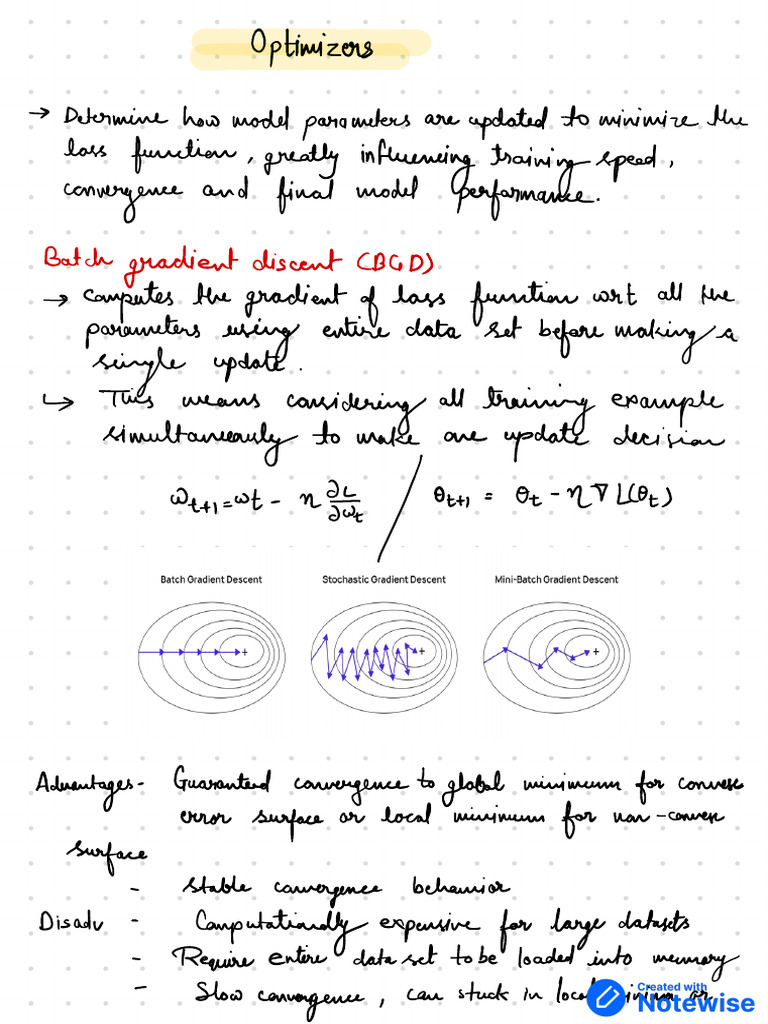 Optimizers
→ Determine how model parameters are updated to minimize the
loss function, greatly influencing training speed,
convergence and final model performance.
Batch gradient discent (BGD)
→ Computes the gradient of loss function wrt all the
parameters using entire data set before making a
single update.
↳ This means considering all training example
simultaneously to make one update decision
ω_{t+1} = ωt - η ∂L/∂ω_t / θ_{t+1} = θ_t - η ∇ L(θ_t)
Batch Gradient Descent Stochastic Gradient Descent Mini-Batch Gradient Descent
+ + +
Advantages - Guaranteed convergence to global minimum for convex
error surface or local minimum for non-convex
surface
- Stable convergence behavior
Disadv - Computationally expensive for large datasets
- Require entire data set to be loaded into memory
- Slow convergence, can stuck in local minima or
Created with
Notewise